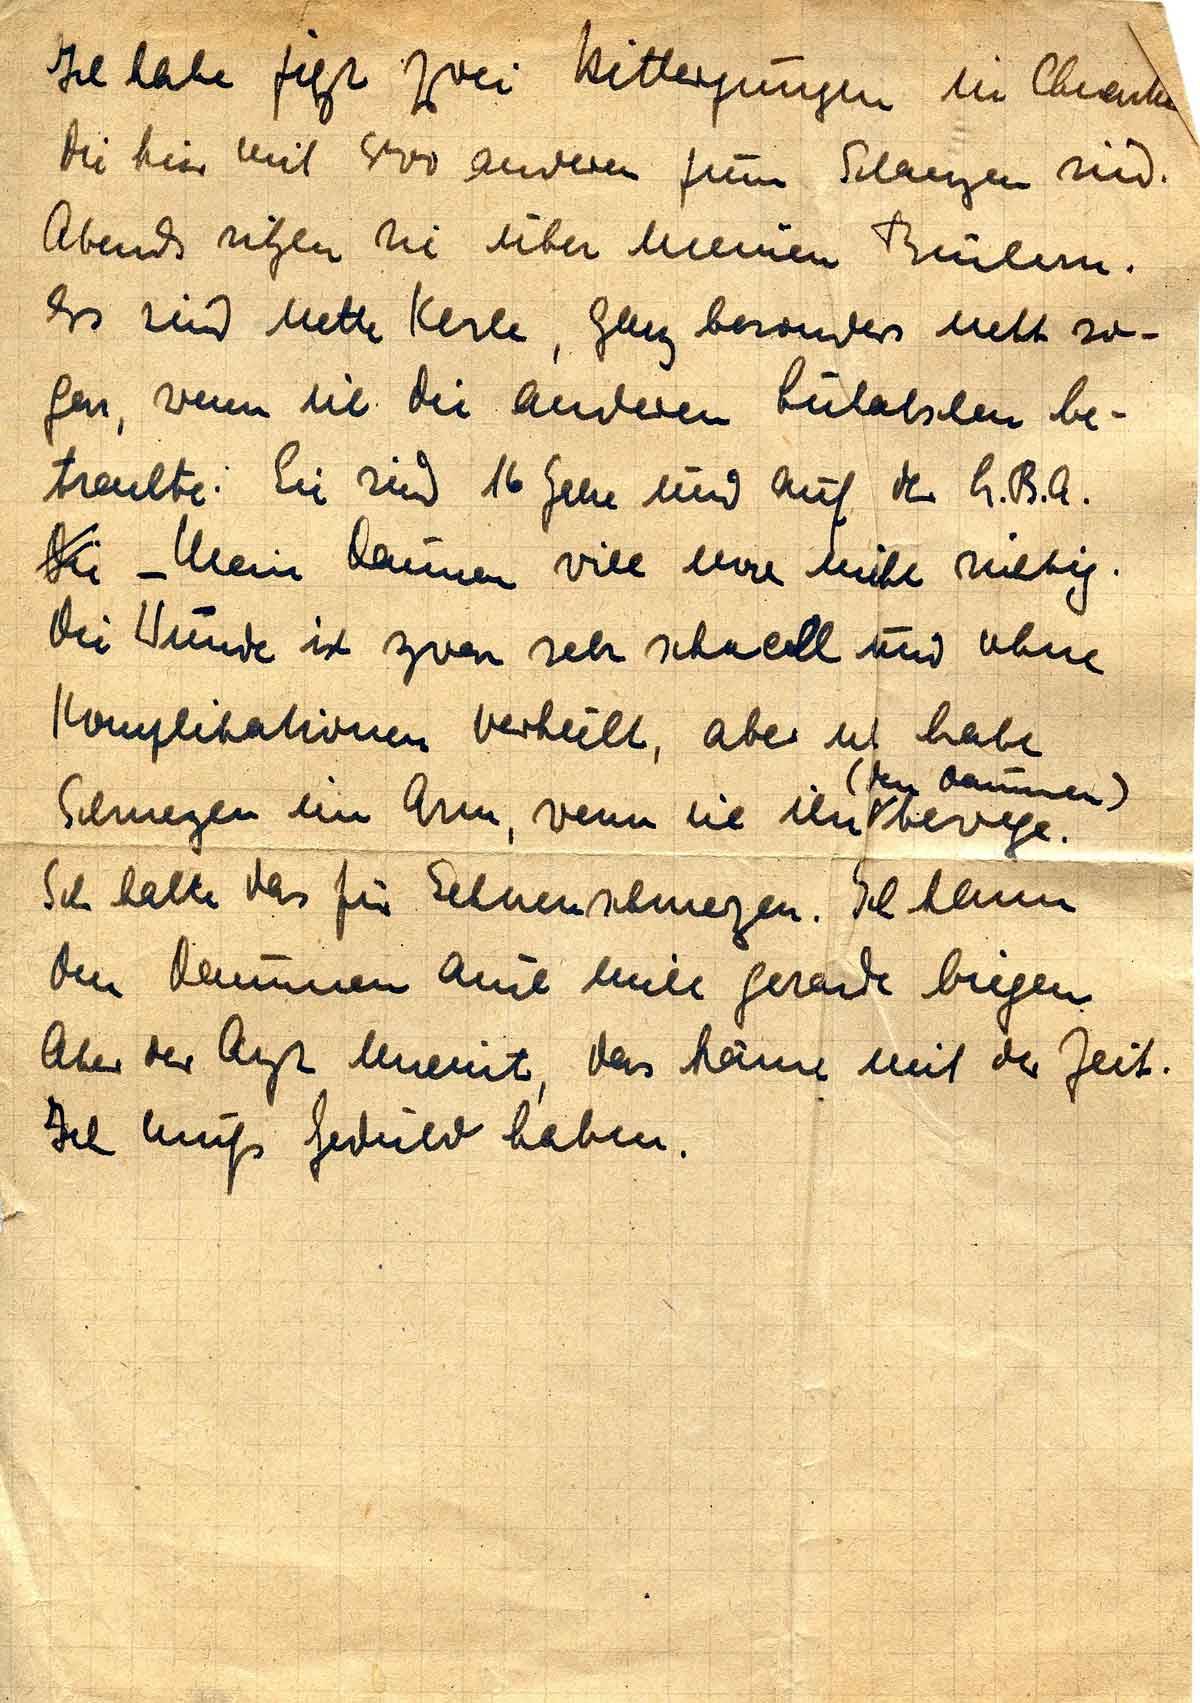 Ich habe jetzt zwei Hitlerjungen in
die hier mit 500 anderen zum Schanzen sind.
Abends sitzen sie über meinen Büchern.
Es sind nette Kerle, ganz besonders nett so-
gar, wenn ich die anderen be-
trachte. Sie sind 16 Jahre und auf der L.B.A.
Die – Mein Daumen will noch nicht richtig.
Die Wunde ist zwar sehr schnell und ohne
Komplikationen verheilt, aber ich habe
(den Daumen)
Schmerzen im Arm, wenn ich ihn bewege.
Ich halte das für Sehnenschmerzen. Ich kann
den Daumen auch nicht gerade biegen.
Aber der Arzt meint, das käme mit der Zeit.
Ich muß Geduld haben.